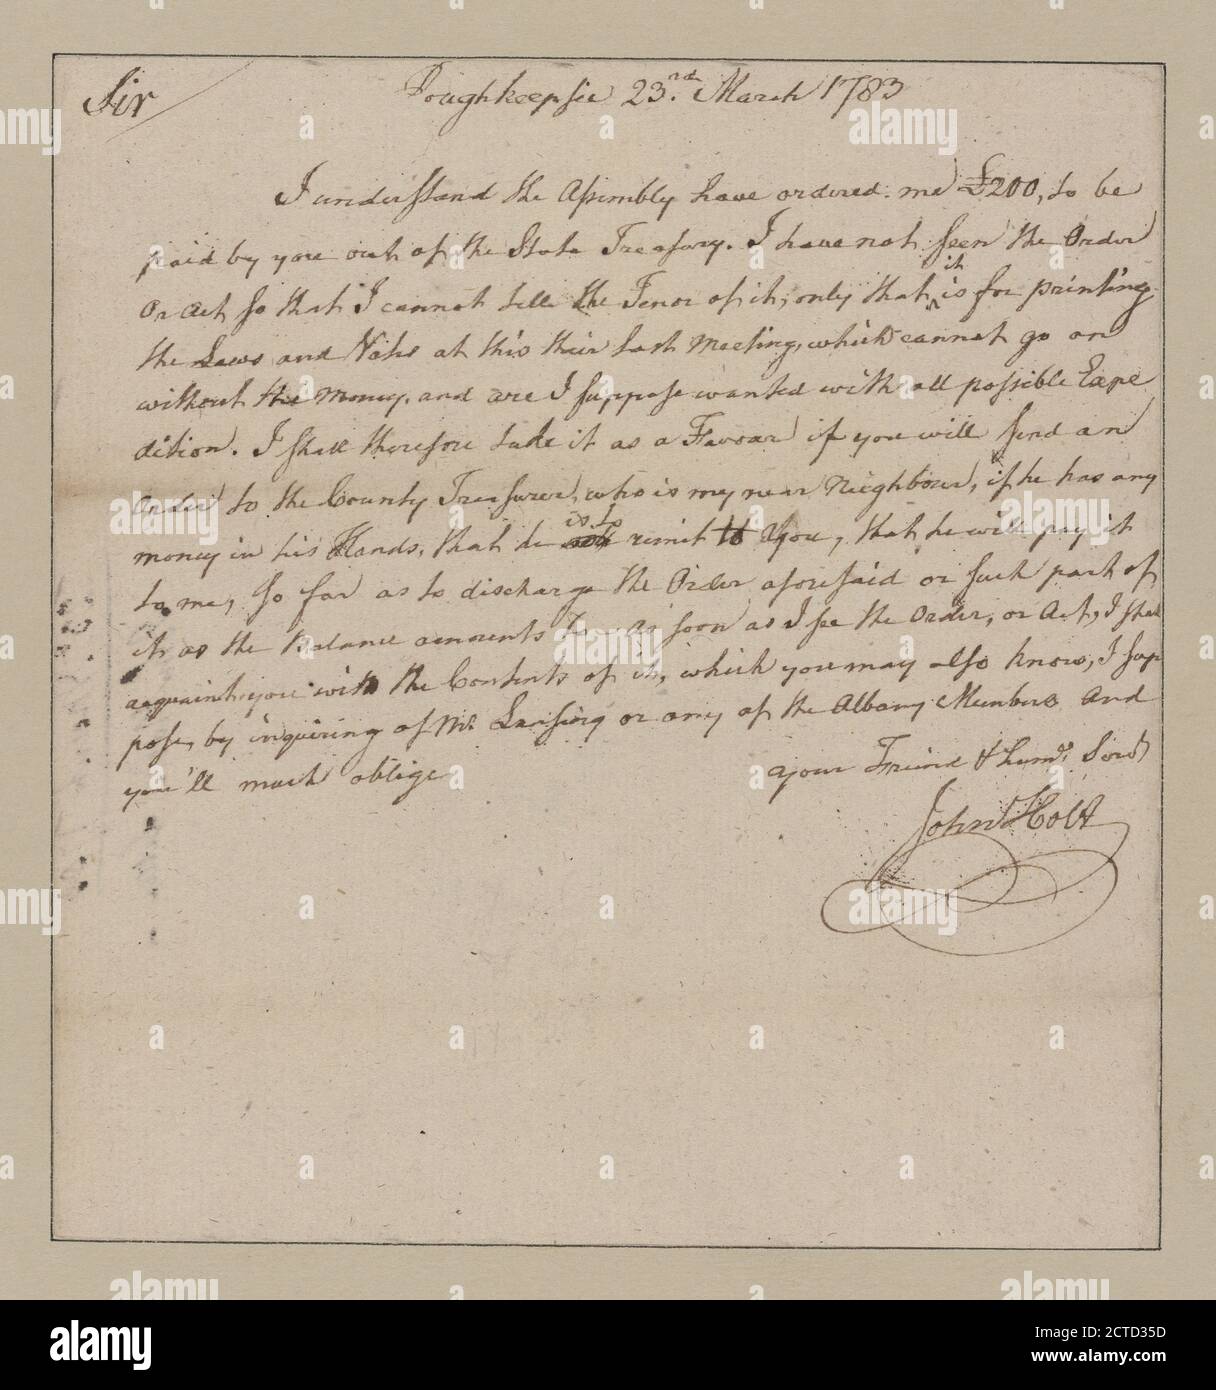 Sir Poughkeepsie 23.nd March 1783
I understand the Assembly have ordered me £200, to be
paid by you out of the State Treasury. I have not seen the Order
or Act so that I cannot tell the Tenor of it, only that it is for printing
the Laws and Votes at this their last Meeting, which cannot go on
without the Money, and are I suppose wanted with all possible Expe
dition. I shall therefore take it as a Favour if you will send an
Order to the County Treasurer, who is my near Neighbour, if he has any
money in his Hands, that he is to remit to You, that he will pay it
to me, so far as to discharge the Order aforesaid or such part of
it as the Balance amounts to. As soon as I see the Order, or Act, I shall
acquaint you with the Contents of it, which you may also know, I sup
pose, by inquiring of Mr. Lansing or any of the Albany Members and
you'll much oblige
Your Friend & hum. Serv
John Holt
alamy
Image ID: 2CTD35D
www.alamy.com